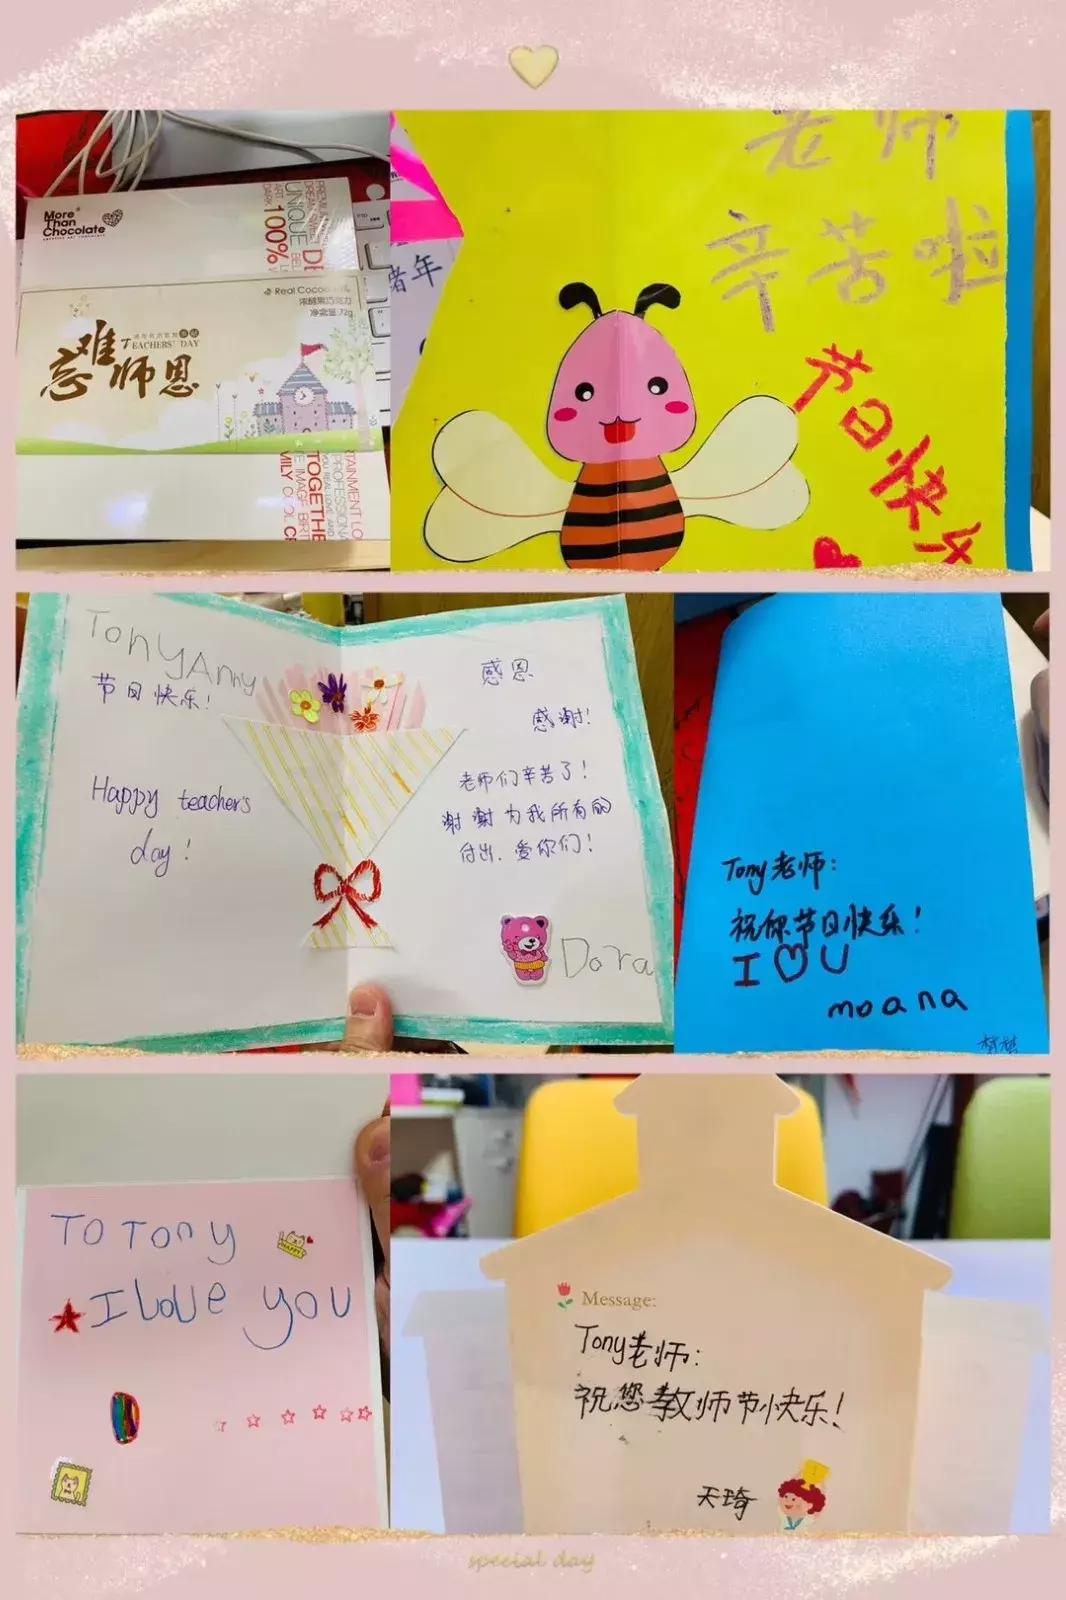 More
Than
Chocolate
UNIQUE
100%
Real Cocoa
浓醇黑巧克力
净含量:72g
TEACHERS' DAY
难忘师恩
TOGETHE
老师
辛苦啦
节日快乐
Tony Anny
节日快乐!
Happy teacher's
day!
感恩
感谢!
老师们辛苦了!
谢谢为我所有的
付出.爱你们!
Dora
Tony老师:
祝你节日快乐!
I ♡ U
moana
TO Tony
HAPPY
I love you
Message:
Tony老师:
祝您教师节快乐!
天琦
special day